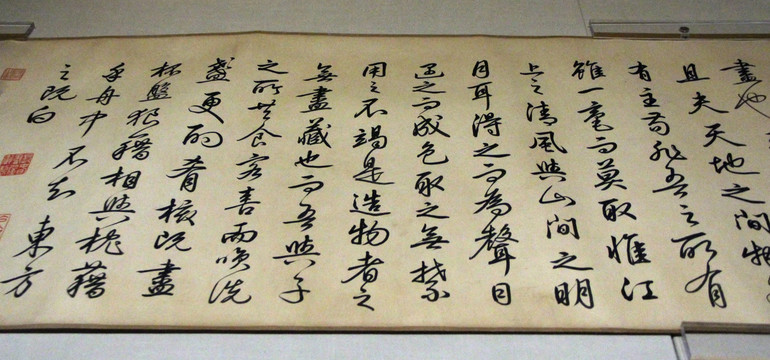 盡也
且夫天地之間物
有主苟非吾之所有
雖一毫而莫取惟江
上之清風與山間之明
月耳得之而為聲目
遇之而成色取之無禁
用之不竭是造物者之
無盡藏也而吾與子
之所共食客喜而笑洗
盞更酌肴核既盡
杯盤狼藉相與枕藉
乎舟中不知東方
之既白